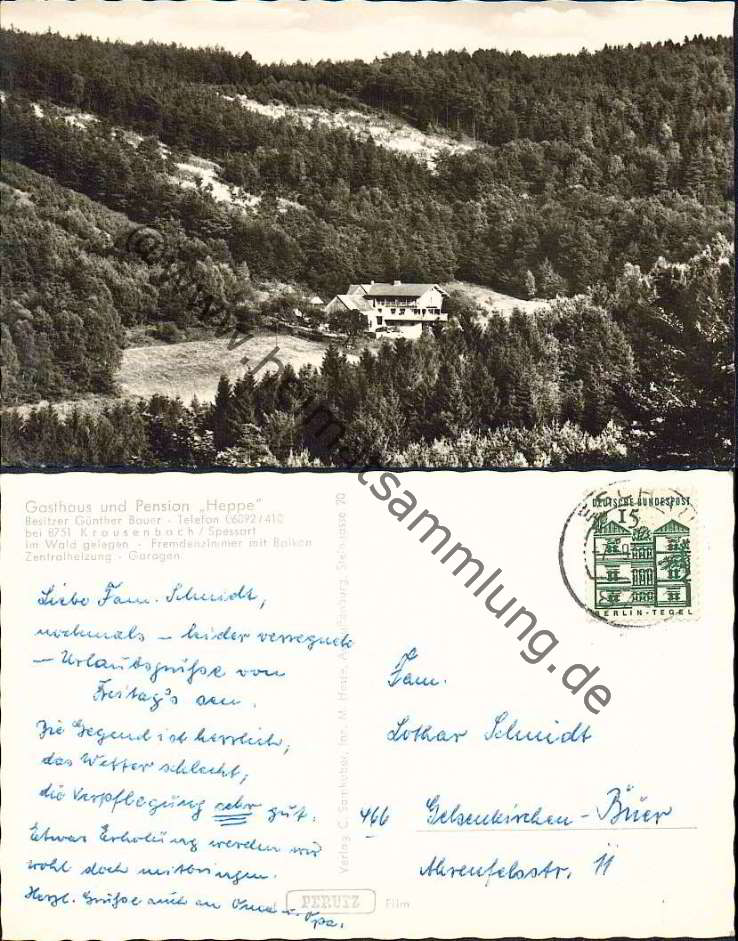 © www.heimatsammlung.de
Gasthaus und Pension „Heppe"
Besitzer Günther Bauer - Telefon 06092/410
bei 8751 Krausenbach / Spessart
im Wald gelegen - Fremdenzimmer mit Balkon
Zentralheizung - Garagen
DEUTSCHE BUNDESPOST
15
BERLIN-TEGEL
Liebe Fam. Schmidt,
nochmals – leider verregnete
– Urlaubsgrüße von
Freitag's sen.
Die Gegend ist herrlich,
das Wetter schlecht,
die Verpflegung sehr gut.
Etwas Erholung werden wir
wohl doch mitbringen.
Herzl. Grüße auch an Oma u. Opa.
Verlag C. Samhaber, Inh. M. Hesse, Aschaffenburg, Steingasse 20
PERUTZ Film
Fam.
Lothar Schmidt
466 Gelsenkirchen-Buer
Ahrenfelsstr. 11